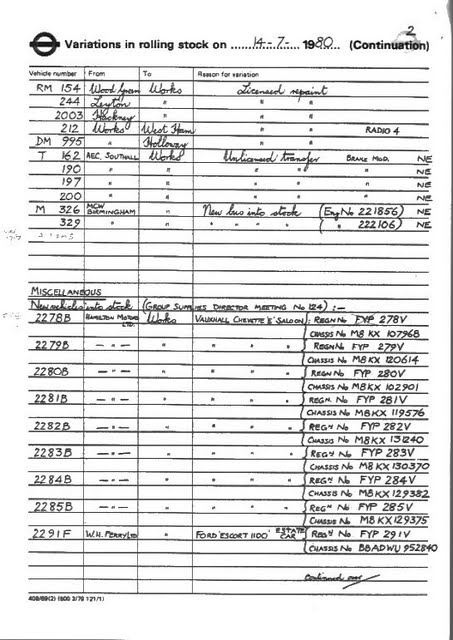 2
Variations in rolling stock on 14-7- 1980 (Continuation)
Vehicle number From To Reason for variation
RM 154 Wood Green Works Licensed repaint
244 Leyton " " "
2003 Hackney " " "
212 Works West Ham " " RADIO 4
DM 995 " Holloway " "
T 162 AEC. SOUTHALL Works Unlicensed transfer BRAKE MOD. NE
190 " " " " " NE
197 " " " " " NE
200 " " " " " NE
M 326 MCW BIRMINGHAM " New bus into stock (Eng No 221856) NE
329 " " " " " " ( " 222106) NE
MISCELLANEOUS
New vehicles into stock (GROUP SUPPLIES DIRECTOR MEETING No 124) :-
2278B HAMILTON MOTORS LTD. Works VAUXHALL CHEVETTE 'E' SALOON : REGN No FYP 278V
CHASSIS No M8 KX 107968
2279B — " — " " " " REGN No FYP 279V
CHASSIS No M8KX 120614
2280B — " — " " " " REGN No FYP 280V
CHASSIS No M8KX 102901
2281B — " — " " " " REGN. No FYP 281V
CHASSIS No M8KX 119576
2282B — " — " " " " REGN No FYP 282V
CHASSIS No M8KX 131240
2283B — " — " " " " REGN No FYP 283V
CHASSIS No M8KX 130370
2284B — " — " " " " REGN No FYP 284V
CHASSIS No M8KX 129382
2285B — " — " " " " REGN No FYP 285V
CHASSIS No M8KX 129375
2291F W.H. PERRY LTD " FORD 'ESCORT 1100' ESTATE CAR REGN No FYP 291V
CHASSIS No BBADWU 952840
Continued over
408/69(2) (600 3/79 121/1)